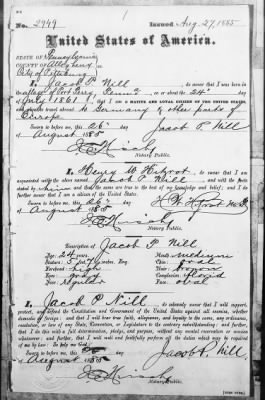 No. 2949 Issued Aug. 27, 1885
United States of America.
STATE OF Pennsylvania
COUNTY OF Allegheny
City of Pittsburg
I, Jacob P. Nill, do swear that I was born in
Port Perry, Penna on or about the 24th day of
July 1861; that I am a NATIVE AND LOYAL CITIZEN OF THE UNITED STATES,
and about to travel abroad to Germany & other parts of
Europe
Sworn to before me, this 26th day
of August 1885
Jacob P. Nill
Notary Public.
I, Henry W. Hitzrot, do swear that I am
acquainted with the above named Jacob P. Nill, and with the facts
stated by him and that the same are true to the best of my knowledge and belief; and I do
further swear that I am a citizen of the United States.
Sworn to before me, this 26th day
of August 1885
Notary Public.
Description of Jacob P. Nill
Age: 24 years
Mouth: medium
Stature: 5 feet
Chin: oval
Forehead: high
Hair: brown
Eyes:
Complexion: florid
Nose: regular
Face: oval
I, Jacob P. Nill, do solemnly swear that I will support,
protect, and defend the Constitution and Government of the United States against all enemies, whether
domestic or foreign; and that I will bear true faith, allegiance, and loyalty to the same, any ordinance,
resolution, or law of any State, Convention, or Legislature to the contrary notwithstanding; and further,
that I do this with a full determination, pledge, and purpose, without any mental reservation or evasion
whatsoever; and further, that I will well and faithfully perform all the duties which may be required
of me by law: So help me God.
Sworn to before me, this day
of August 1885
Jacob P. Nill
Notary Public.